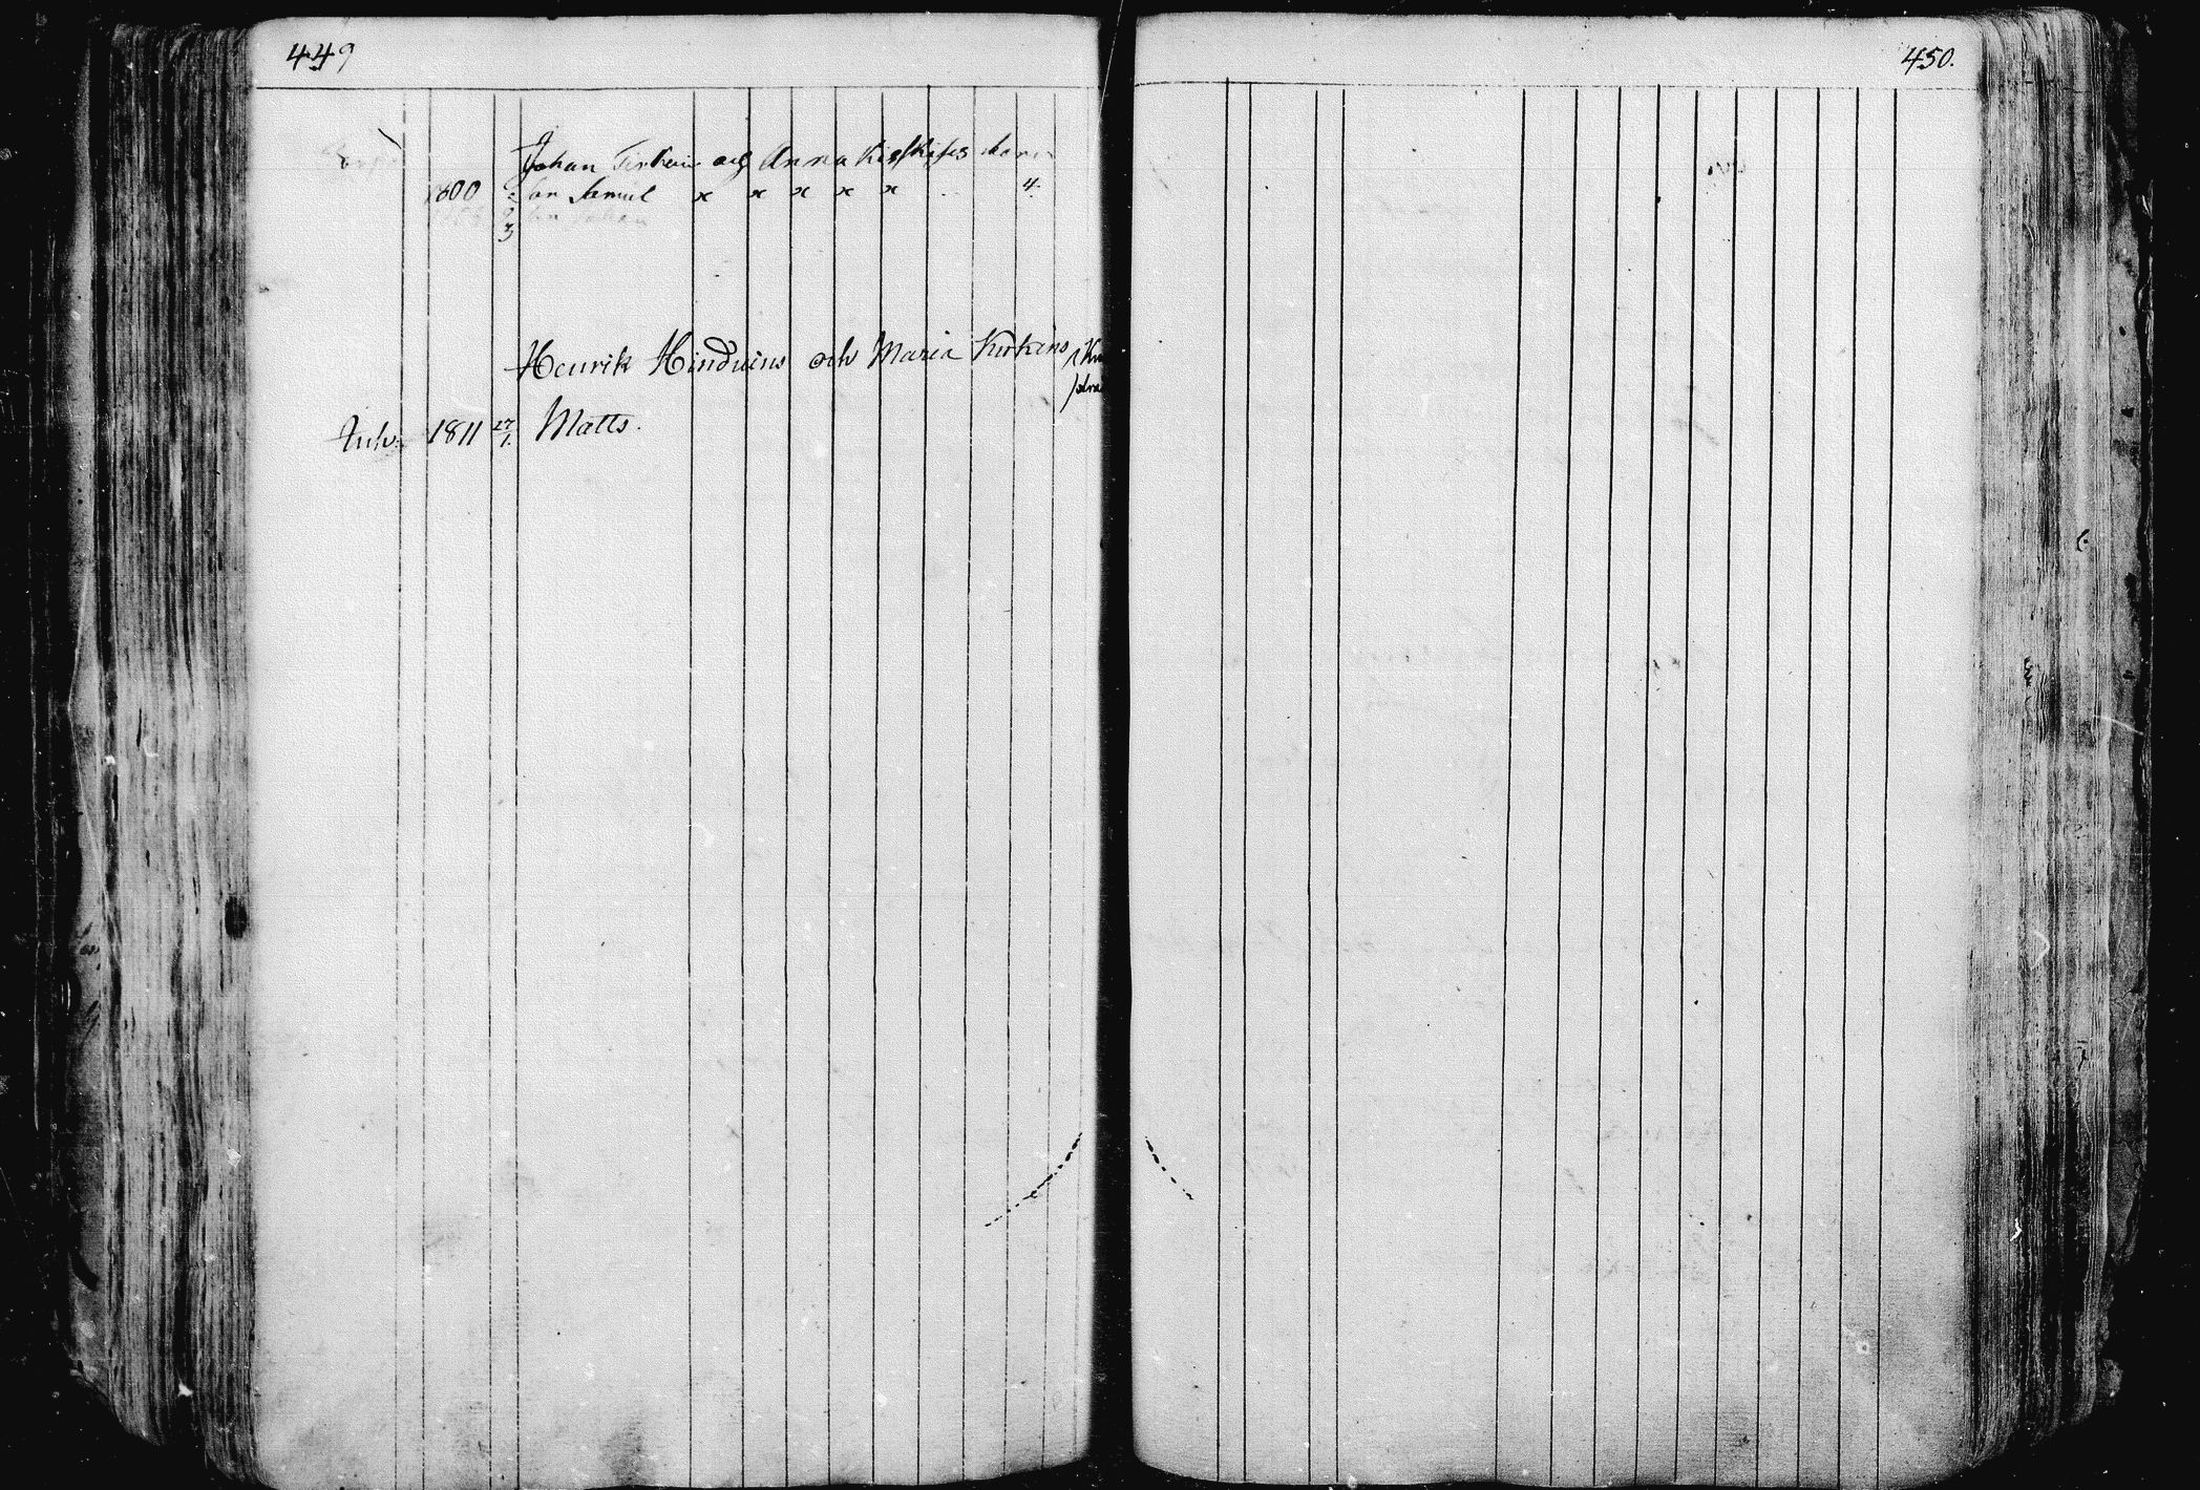 449
Johan och Anna barn
1800 Son Samuel x x x x x 4.
3 Son Johan
Henrik Hinduins och Maria Kirkins
Inh: 1811 27/1. Matts.
450.